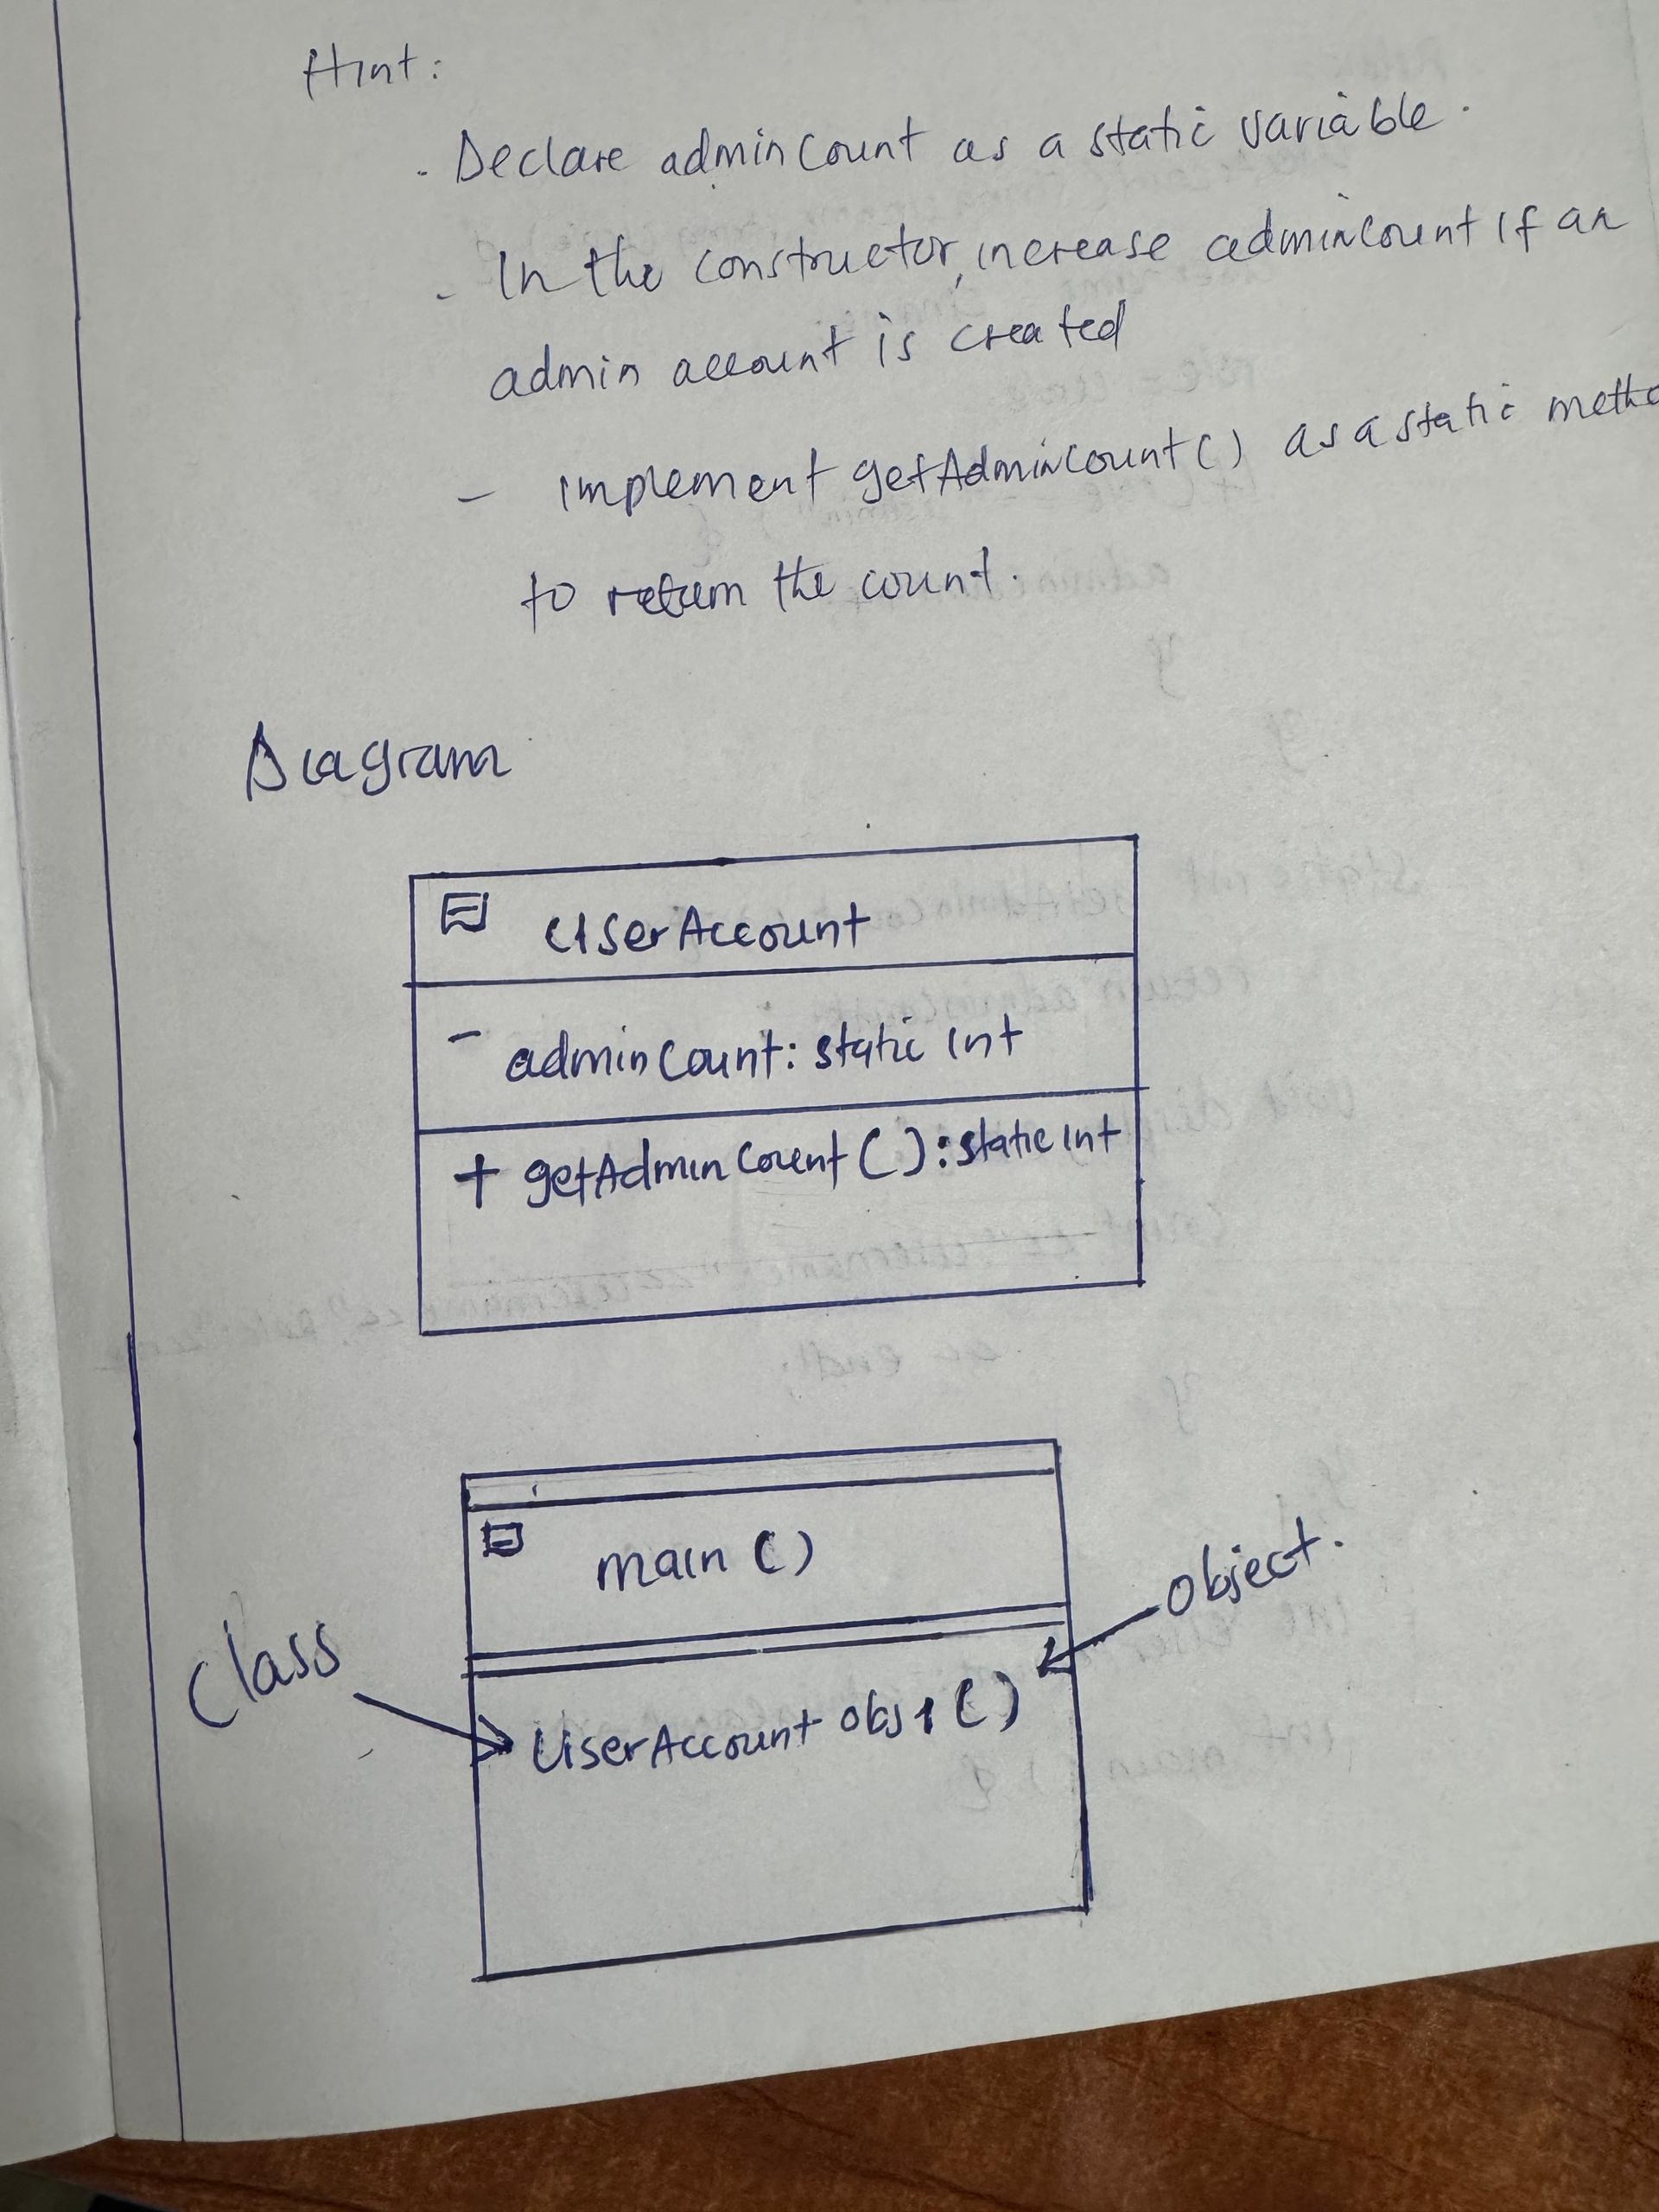 Hint:
- Declare adminCount as a static variable.
- In the constructor, increase adminCount if an
admin account is created
- implement getAdminCount() as a static
to return the count.
Diagram
UserAccount
- adminCount: static int
+ getAdminCount(): static int
main()
object.
Class
UserAccount obj1()